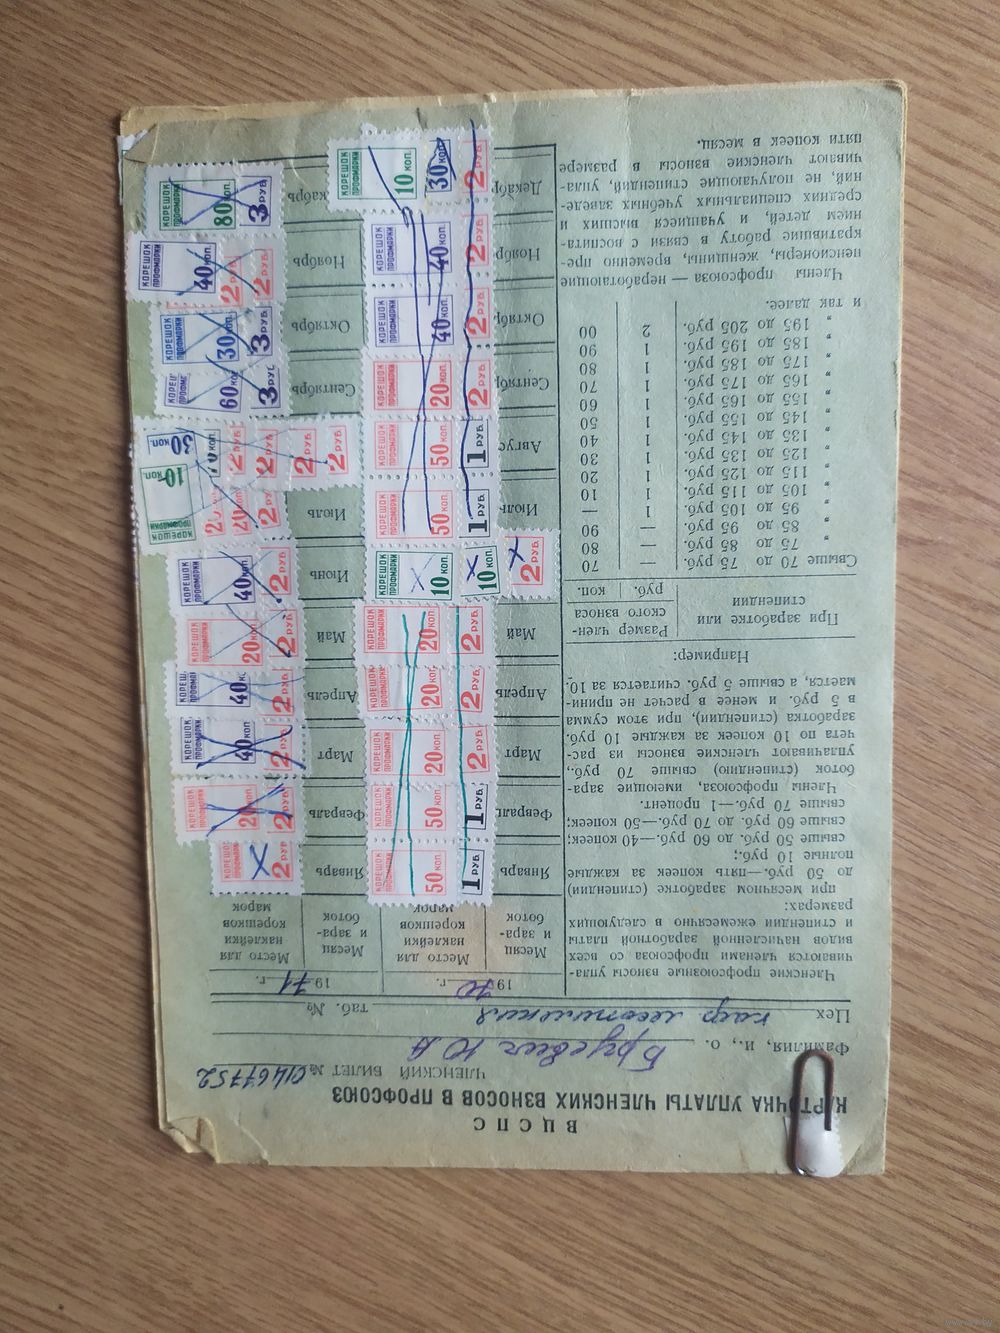 ВЦСПС
КАРТОЧКА УПЛАТЫ ЧЛЕНСКИХ ВЗНОСОВ В ПРОФСОЮЗ
ЧЛЕНСКИЙ БИЛЕТ №
Фамилия, и., о. Бруевич Ю А
Цех каф. таб. №
Членские профсоюзные взносы упла-
чиваются членами профсоюза со всех
видов начисленной заработной платы
и стипендии ежемесячно в следующих
размерах:
при месячном заработке (стипендии)
до 50 руб.—пять копеек за каждые
полные 10 руб.;
свыше 50 руб. до 60 руб.—40 копеек;
свыше 60 руб. до 70 руб.—50 копеек;
свыше 70 руб.—1 процент.
Члены профсоюза, имеющие зара-
боток (стипендию) свыше 70 руб.,
уплачивают членские взносы из рас-
чета по 10 копеек за каждые 10 руб.
заработка (стипендии), при этом сумма
в 5 руб. и менее в расчет не прини-
мается, а свыше 5 руб. считается за 10.
Например:
При заработке или стипендии
Размер член-
ского взноса
руб. коп.
Свыше 70 до 75 руб. — 70
" 75 до 85 руб. — 80
" 85 до 95 руб. — 90
" 95 до 105 руб. 1 —
" 105 до 115 руб. 1 10
" 115 до 125 руб. 1 20
" 125 до 135 руб. 1 30
" 135 до 145 руб. 1 40
" 145 до 155 руб. 1 50
" 155 до 165 руб. 1 60
" 165 до 175 руб. 1 70
" 175 до 185 руб. 1 80
" 185 до 195 руб. 1 90
" 195 до 205 руб. 2 00
и так далее.
Члены профсоюза — неработающие
пенсионеры, женщины, временно пре-
кратившие работу в связи с воспита-
нием детей, и учащиеся высших и
средних специальных учебных заведе-
ний, не получающие стипендий, упла-
чивают членские взносы в размере
пяти копеек в месяц.
1970 г.
Месяц и зара-
боток
Место для
наклейки
корешков
марок
Январь КОРЕШОК ПРОФМАРКИ 50 КОП. 1 РУБ.
Февраль КОРЕШОК ПРОФМАРКИ 50 КОП. 1 РУБ.
Март КОРЕШОК ПРОФМАРКИ 20 КОП. 2 РУБ.
Апрель КОРЕШОК ПРОФМАРКИ 20 КОП. 2 РУБ.
Май КОРЕШОК ПРОФМАРКИ 20 КОП. 2 РУБ.
Июнь КОРЕШОК ПРОФМАРКИ 10 КОП. 10 КОП. 2 РУБ.
Июль КОРЕШОК ПРОФМАРКИ 50 КОП. 1 РУБ.
Авгус КОРЕШОК ПРОФМАРКИ 50 КОП. 1 РУБ.
Сентяб КОРЕШОК ПРОФМАРКИ 20 КОП. 2 РУБ.
Октяб КОРЕШОК ПРОФМАРКИ 40 КОП. 2 РУБ.
Ноябр КОРЕШОК ПРОФМАРКИ 40 КОП. 2 РУБ.
Декабр КОРЕШОК ПРОФМАРКИ 10 КОП. 30 КОП. 2 РУБ.
1971 г.
Месяц и зара-
боток
Место для
наклейки
корешков
марок
Январь КОРЕШОК 2 РУБ
Февраль КОРЕШОК ПРОФМАРКИ 20 КОП. 2 РУБ.
Март КОРЕШОК ПРОФМАРКИ 40 КОП 2 РУБ
Апрель КОРЕШ ПРОФМ 40 КО 2 РУБ.
Май КОРЕШОК ПРОФМАРКИ 20 КОП. 2 РУБ.
Июнь КОРЕШОК ПРОФМАРКИ 40 КОП. 2 РУБ.
Июль КОРЕШОК ПРОФМАРКИ 10 КОП. 20 2 РУБ.
30 КОП. 2 РУБ. 2 РУБ. 2 РУБ. 2 РУБ.
Сентябрь КОРЕШ ПРОФМ 60 КО 3 РУБ
Октябрь КОРЕШОК ПРОФМАРКИ 30 КОП. 3 РУБ.
Ноябрь КОРЕШОК ПРОФМАРКИ 40 КОП. 2 РУБ. 2 РУБ.
кабрь КОРЕШОК ПРОФМАРКИ 80 КОП. 3 РУБ.